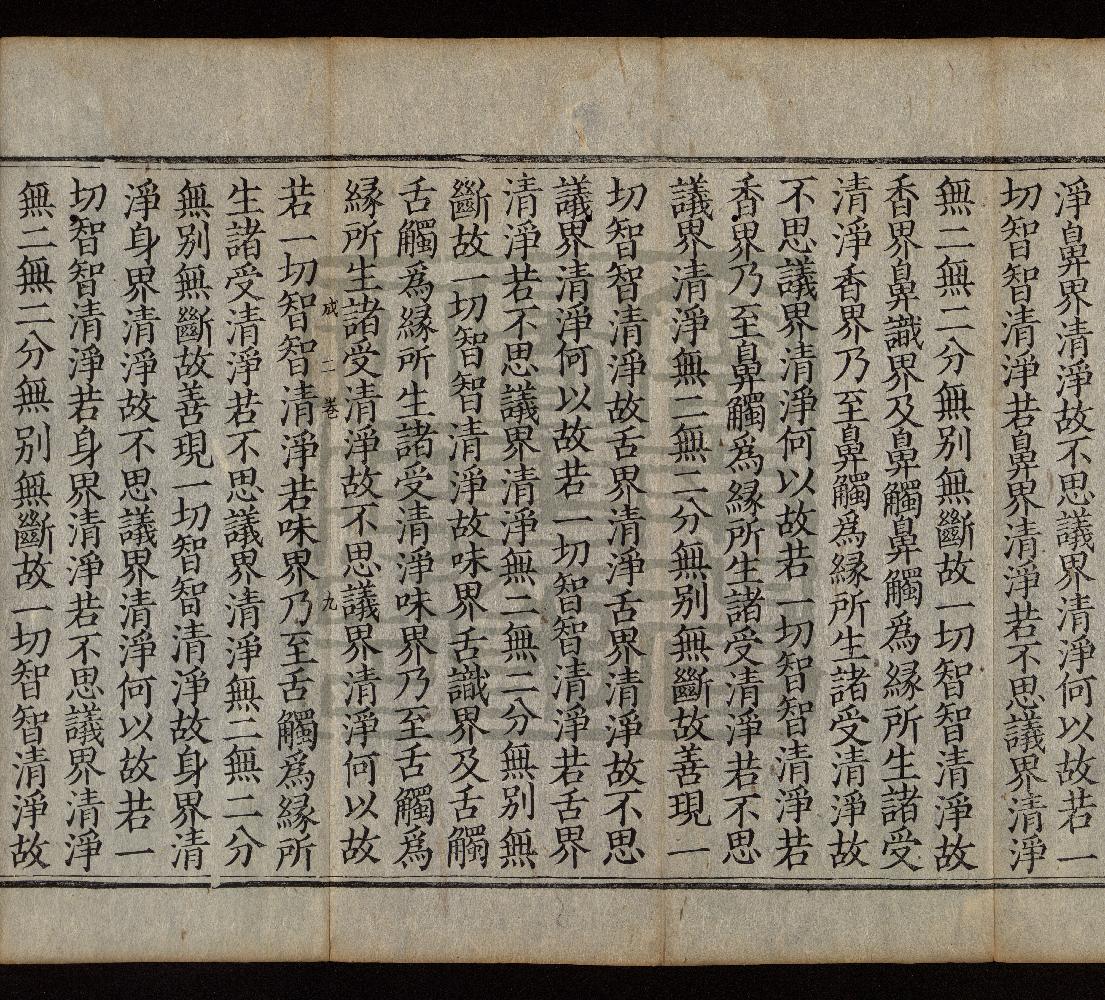 淨鼻界清淨故不思議界清淨何以故若一
切智智清淨若鼻界清淨若不思議界清淨
無二無二分無别無斷故一切智智清淨故
香界鼻識界及鼻觸鼻觸爲緣所生諸受
清淨香界乃至鼻觸爲緣所生諸受清淨故
不思議界清淨何以故若一切智智清淨若
香界乃至鼻觸爲緣所生諸受清淨若不思
議界清淨無二無二分無别無斷故善現一
切智智清淨故舌界清淨舌界清淨故不思
議界清淨何以故若一切智智清淨若舌界
清淨若不思議界清淨無二無二分無别無
斷故一切智智清淨故味界舌識界及舌觸
舌觸爲緣所生諸受清淨味界乃至舌觸爲
緣所生諸受清淨故不思議界清淨何以故
成 二卷 九
若一切智智清淨若味界乃至舌觸爲緣所
生諸受清淨若不思議界清淨無二無二分
無别無斷故善現一切智智清淨故身界清
淨身界清淨故不思議界清淨何以故若一
切智智清淨若身界清淨若不思議界清淨
無二無二分無别無斷故一切智智清淨故